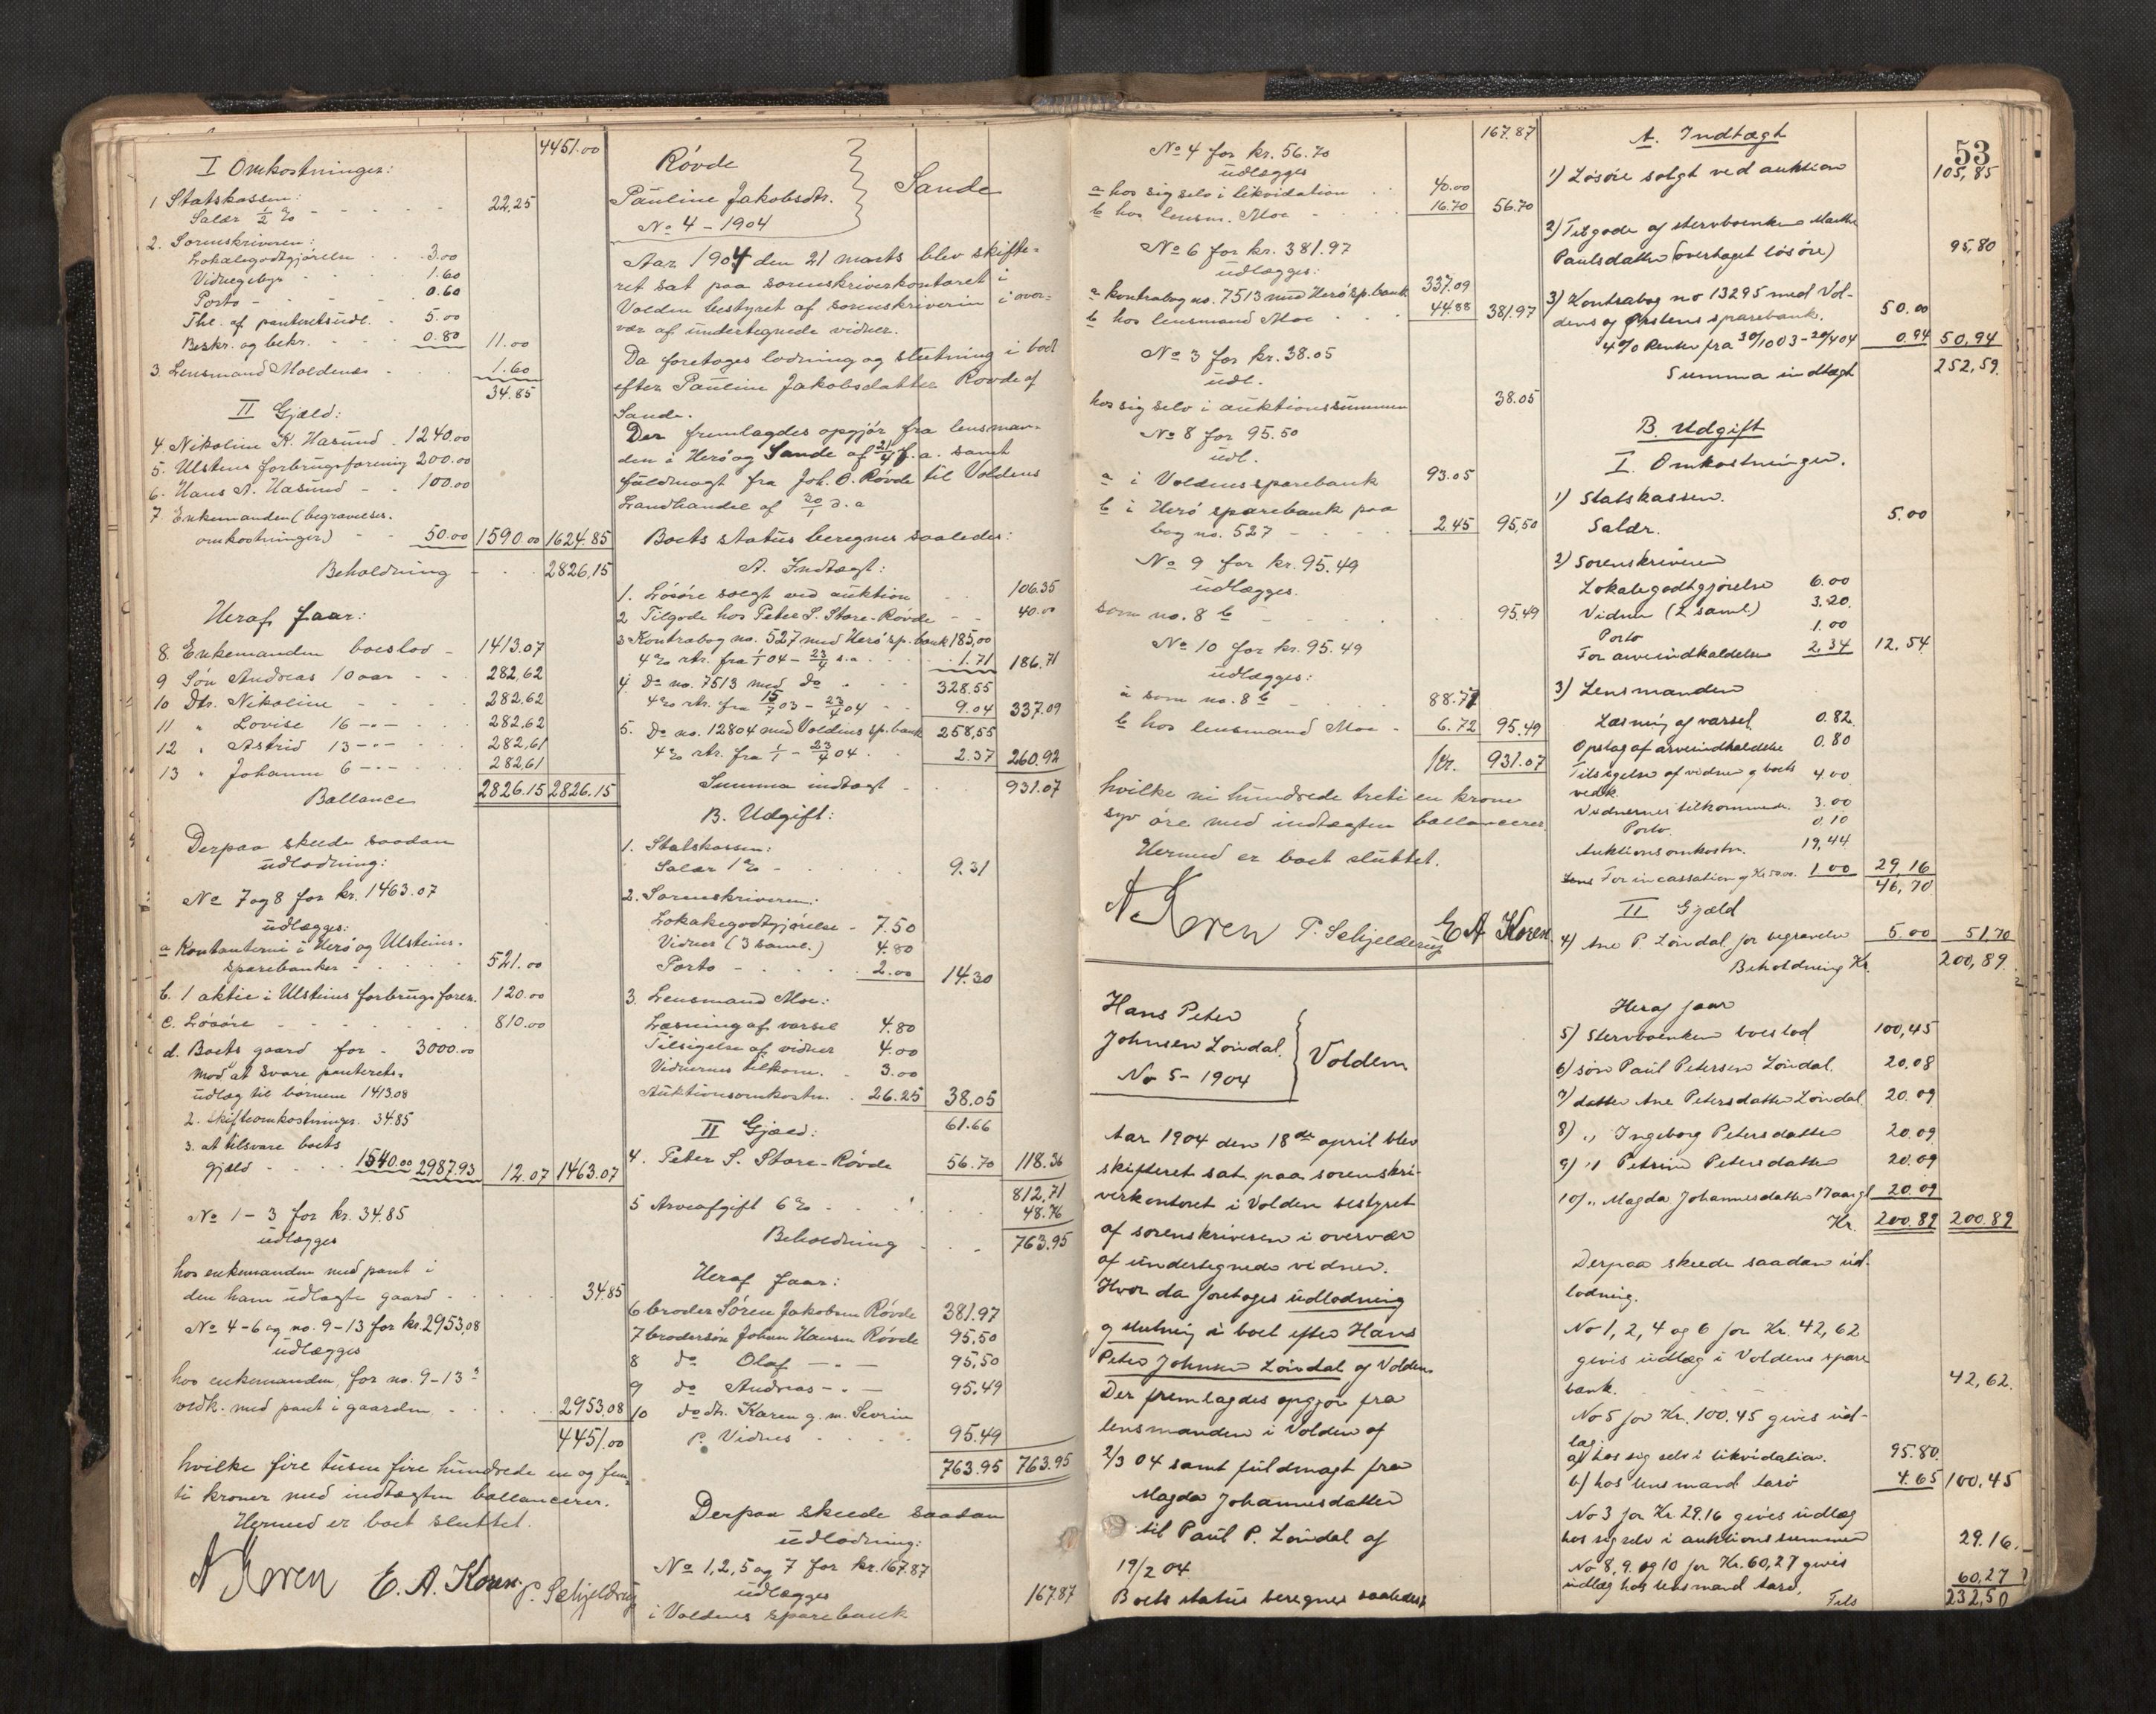 4451.00
I Omkostninger:
1 Statskassen:
Salær ½ % - - - - - 22,25
2. Sorenskriveren:
Lokalegodtgjørelse . . 3.00
Vidnegebyr - 1.60
Porto - - - - 0.60
Thl. af panteretsudl. . 5.00
Beskr. og bekr. . . . 0.80 11.00
3. Lensmand Moldenæs . . . 1.60
34.85
II Gjæld:
4. Nikoline K. Hasund . 1240.00
5. Ulstens forbrugsforening 200.00
6. Hans A. Hasund - . 100.00
7. Enkemanden (begravelses-
omkostninger) - . 50.00 1590.00 1624.85
Beholdning - . . 2826,15
Heraf faar:
8. Enkemanden boeslod - 1413.07
9 Søn Andreas 10 aar - - 282,62
10 Dtr. Nikoline - - - - 282.62
11 " Lovise 16 -"- . . 282,62
12 " Astrid 13 -"- . . 282,61
13 " Johanne 6 -"- . . 282,61
Ballance 2826.15 2826.15
Derpaa skede saadan
udlodning:
No 7 og 8 for kr. 1463.07
udlægges:
a Kontanterne i Herø og Ulsteins-
sparebanker - . . . . 521.00
b. 1 aktie i Ulsteins forbrugsforen. 120.00
c. Løsøre - - - - - 810.00
d. Boets gaard for - 3000.00
mod at svare panterets-
udlæg til børnene 1413.08
2. skifteomkostninger. 34.85
3. at tilsvare boets
gjæld - . . . 1540.00 2987.93 12.07 1463.07
No 1 - 3 for kr. 34.85
udlægges
hos enkemanden med pant i
den ham udlagte gaard - . . . . 34.85
No 4-6 og no. 9-13 for kr. 2953,08
udlægges
hos enkemanden, for no. 9-13s
vedk. med pant i gaarden - . . . 2953.08
4451.00
hvilke fire tusen fire hundrede en og fem-
ti kroner med indtægten ballancerer.
Hermed er boet sluttet.
A Koren E. A. Koren. P. Schjelderup
Røvde
Pauline Jakobsdtr. Sande
No 4 - 1904
Aar 1904 den 21 marts blev skifte-
ret sat paa sorenskriverkontoret i
Volden bestyret af sorenskriveren i over-
vær af undertegnede vidner.
Da foretoges lodning og slutning i boet
efter Pauline Jakobsdatter Røvde af
Sande.
Der fremlagdes opgjør fra lensman-
den i Herø og Sande af 21/4 f.a. samt
fuldmagt fra Joh. O. Røvde til Voldens
Landhandel af 30/1 d.a
Boets status beregnes saaledes:
A. Indtægt:
1. Løsøre solgt ved auktion . . 106.35
2 Tilgode hos Peter S. Store-Røvde - - 40.00
3 Kontrabog no. 527 med Herø sp.bank 185,00
4% rtr. fra 1/1 04 - 23/4 s.a. . . . 1.71 186.71
4 Do no. 7513 med do . . . 328.55
4% rtr. fra 15/7 03 - 23/4 04 . . 9.04 337.09
5. Do no. 12804 med Voldens sp.bank 258,55
4% rtr. fra 1/1 - 23/4 04 . . 2.37 260.92
Summa indtægt - . 931.07
B. Udgift:
1. Statskassen:
Salær 1% - . . . . 9.31
2. Sorenskriveren:
Lokalegodtgjørelse - 7.50
Vidner (3 saml.) 4.80
Porto - . . . . 2.00 14.30
3. Lensmand Moe:
Læsning af varsel 4.80
Tilsigelse af vidner 4.00
Vidnernes tilkom. . 3.00
Auktionsomkostn. . 26.25 38.05
61.66
II Gjæld:
4. Peter S. Store-Røvde 56.70 118.36
812,71
5 Arveafgift 6% - . . . . 48.76
Beholdning - . 763.95
Heraf faar:
6 broder Søren Jakobsen Røvde 381.97
7 brodersøn Johan Hansen Røvde 95.50
8 do Olaf -"- 95,50
9 do Andreas -"- 95.49
10 do dtr. Karen g. m. Severin
P. Vidnes . . . 95.49
763.95 763.95
Derpaa skede saadan
udlodning:
No 1, 2, 5 og 7 for kr. 167.87
udlægges
i Voldens sparebank 167.87
167.87
No 4 for kr. 56.70
udlægges
a hos sig selv i likvidation . . 40.00
b hos lensm. Moe - . . . 16.70 56.70
No 6 for kr. 381.97
udlægges:
a kontrabog no. 7513 med Herø sp.bank 337.09
b hos lensmand Moe . . . 44.88 381.97
No 3 for kr. 38.05
udl.
hos sig selv i auktionssummen 38.05
No 8 for 95.50
udl.
a i Voldens sparebank 93.05
b i Herø sparebank paa
bog no. 527 - . . . 2.45 95,50
No 9 for kr. 95.49
udlægges.
som no. 8 b - . . . . 95.49
No 10 for kr. 95.49
udlægges:
a som no. 8 b - . . . 88.77
b hos lensmand Moe - 6.72 95.49
Kr. 931.07
hvilke ni hundrede treti en krone
syv øre med indtægten ballancerer.
Hermed er boet sluttet.
A Koren P. Schjelderup E A Koren
Hans Peter
Johnsen Løndal. Volden
No 5 - 1904
Aar 1904 den 18de april blev
skifteret sat paa sorenskri-
verkontoret i Volden bestyret
af sorenskriveren i overvær
af undertegnede vidner.
Hvor da foretoges udlodning
og slutning i boet efter Hans
Peter Johnsen Løndal af Volden.
Der fremlagdes opgjør fra
lensmanden i Volden af
2/3 04 samt fuldmagt fra
Magda Johannesdatter
til Paul P. Løndal af
19/2 04
Boets status beregnes saaledes:
53
A. Indtægt
1) Løsøre solgt ved auktion 105,85
2) Tilgode af stervboenken Marthe
Paulsdatter (overtaget løsøre) 95,80
3) Kontrabog no 13295 med Vol-
dens og Ørstens sparebank. 50.00
4% Renter fra 30/10 03 - 20/4 04 0.94 50,94
Summa indtægt 252,59.
B. Udgift
I. Omkostninger.
1) Statskassen.
Salær. 5.00
2) Sorenskriveren
Lokalegodtgjørelse 6.00
Vidner (2 saml.) 3.20.
Porto 1.00
For arveindkaldelse 2,34 12,54
3) Lensmanden
Læsning af varsel 0.82.
Opslag af arveindkaldelse 0.80
Tilsigelse af vidner og boets
vedk. 4.00
Vidnernes tilkommende. 3.00
Porto. 0,10
Auktionsomkostn. 19,44
For incassation af Kr 50.00. 1.00 29,16
46,70
II Gjæld
4) Ane P. Løndal for begravelse 5.00 51,70
Beholdning Kr. 200,89.
Heraf faar
5) Stervboenken boeslod 100,45
6) søn Paul Petersen Løndal. 20.08
7) datter Ane Petersdatter Løndal. 20.09
8) " Ingeborg Petersdatter 20.09
9) " Petrine Petersdatter 20.09
10) " Magda Johannesdatter 17 aar gl 20.09
Kr. 200.89 200.89
Derpaa skede saadan ud-
lodning.
No 1, 2, 4 og 6 for Kr. 42,62
gives udlæg i Voldens spare
bank. 42,62.
No 5 for Kr. 100.45 gives ud-
læg.
a) hos sig selv i likvidation. 95.80.
b) hos lensmand Aarø 4.65 100,45
No 3 for Kr. 29.16 gives udlæg
hos sig selv i auktionssummen 29.16.
No 8, 9 og 10 for Kr. 60,27 gives
udlæg hos lensmand Aarø. 60.27
Tils 232,50